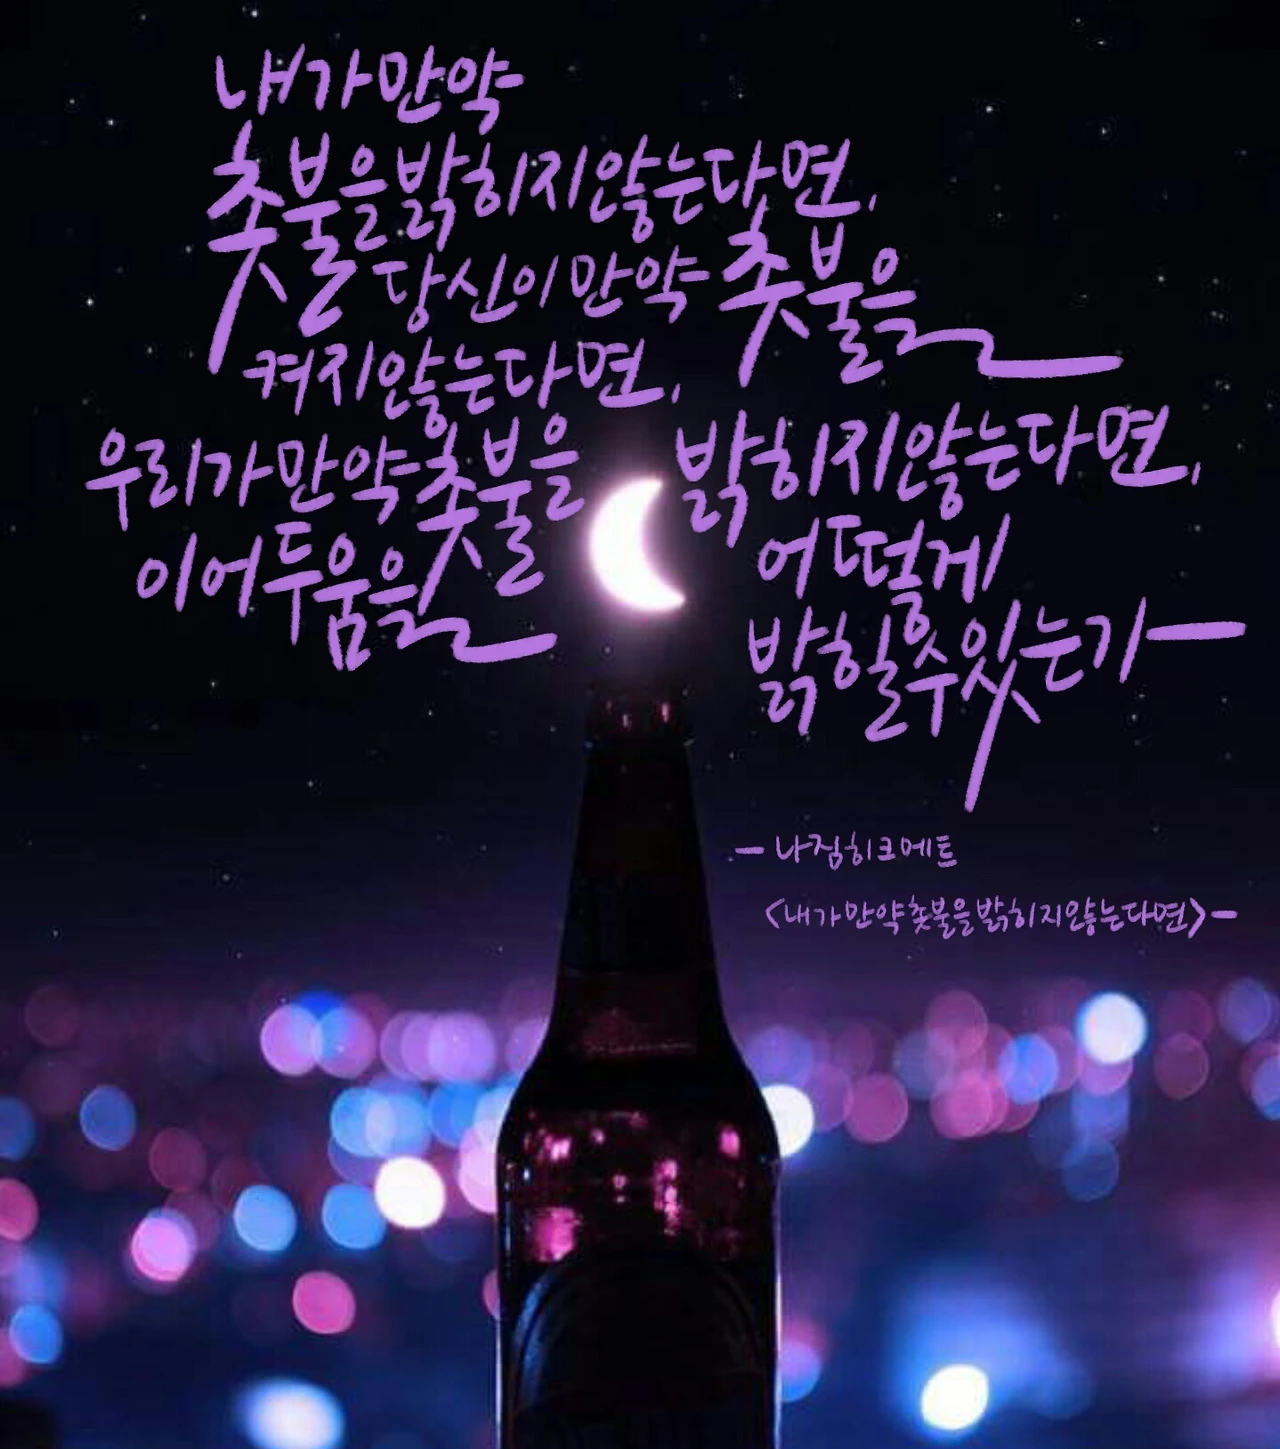 내가 만약
촛불을 밝히지 않는다면,
당신이 만약 촛불을
켜지 않는다면,
우리가 만약 촛불을 밝히지 않는다면,
이 어두움을 어떻게
밝힐 수 있는가
- 나짐 히크메트
<내가 만약 촛불을 밝히지 않는다면> -